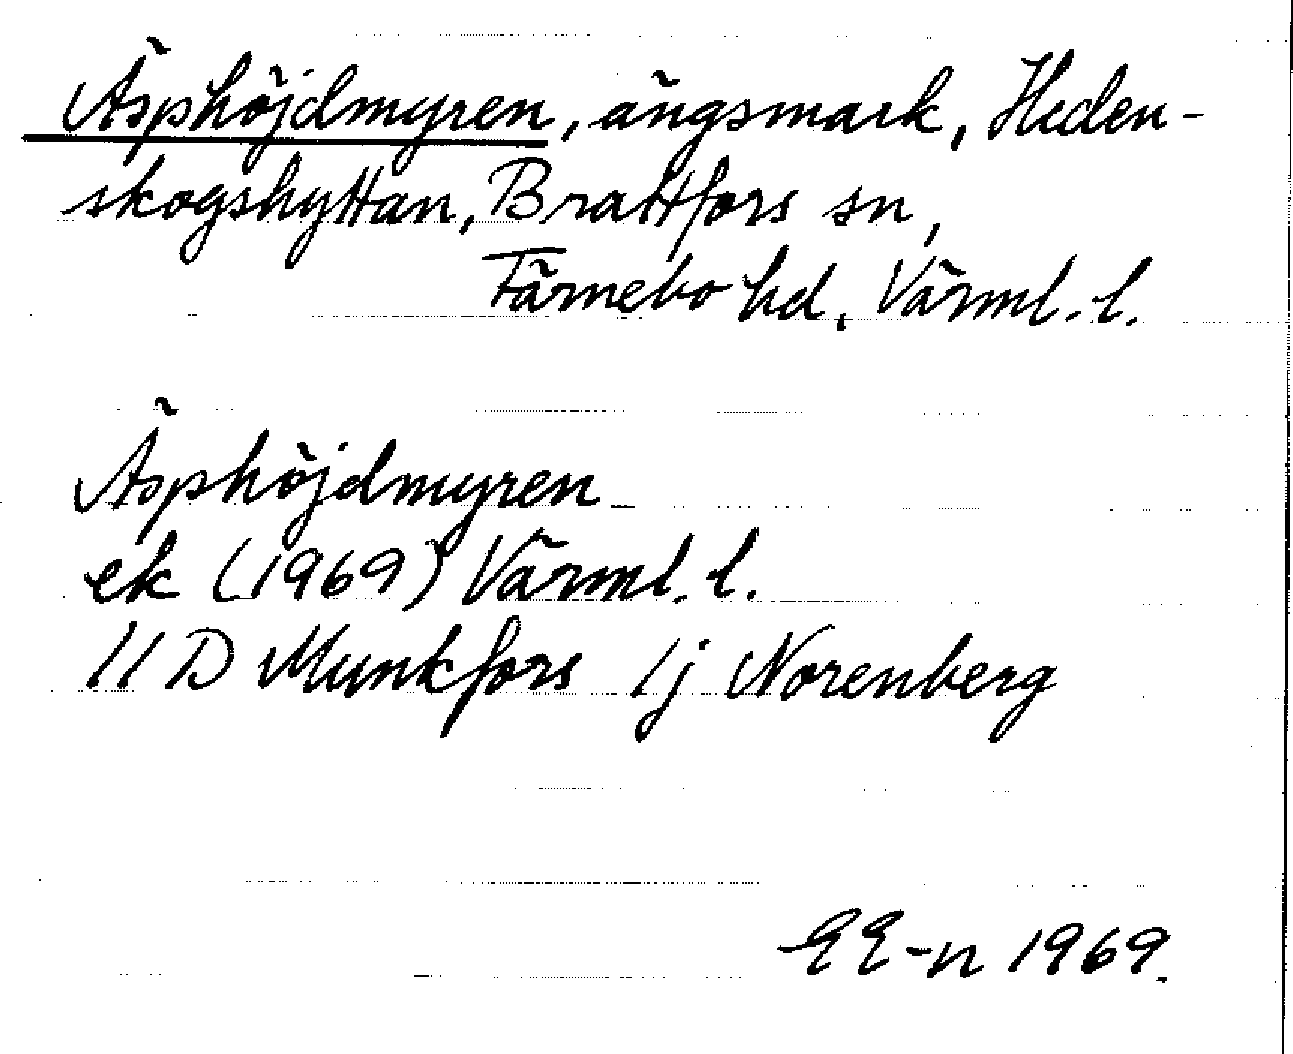 Äsphöjdmyren, ängsmark, Heden-
skogshyttan, Brattfors sn,
Färnebo hd, Värml. l.
Äsphöjdmyren
ek (1969) Värml. l.
11 D Munkfors 1j Norenberg
EE-n 1969.